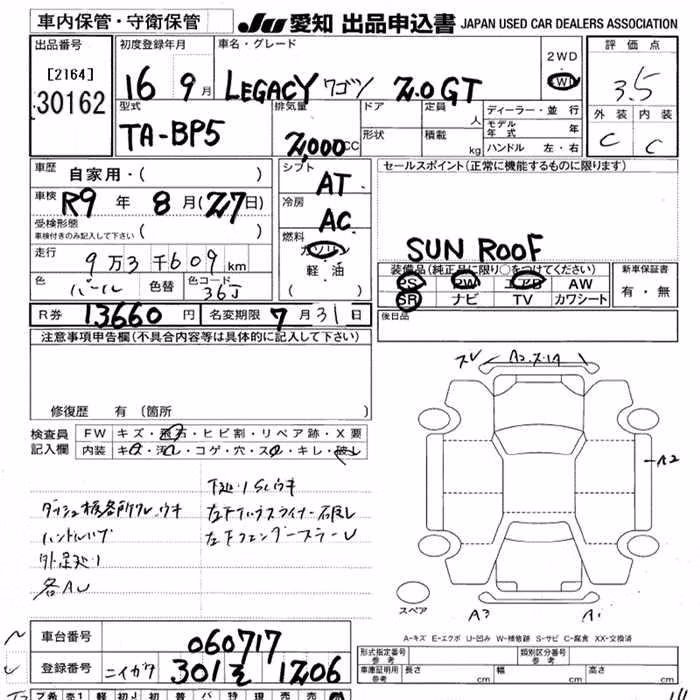 車内保管・守衛保管
JU 愛知 出品申込書 JAPAN USED CAR DEALERS ASSOCIATION
出品番号
[2164]
30162
初度登録年月
16 9月
車名・グレード
LEGACY ワゴン 2.0GT
2WD
4WD
評価点
3.5
外装 内装
C C
型式
TA-BP5
排気量
2,000 CC
ドア
形状
定員 人
積載 kg
ディーラー・並行
モデル年式 年
ハンドル 左・右
車歴 自家用・( )
車検 R9年 8月(27日)
受検形態
車検付きのみ記入して下さい ( )
走行 9万3千609km
色 パール 色替 色コード 36J
シフト AT
冷房 AC
燃料 ガソリン
軽・油
( )
セールスポイント(正常に機能するものに限ります)
SUN ROOF
装備品(純正品に限り○をつけてください)
PS PW エアB AW
SR ナビ TV カワシート
新車保証書
有・無
R券 13660円 名変期限 7月31日
後日品
注意事項申告欄(不具合内容等は具体的に記入して下さい)
修復歴 有 (箇所 )
検査員記入欄
FW キズ・飛石・ヒビ割・リペア跡・X要
内装 キズ・汚れ・コゲ・穴・スレ・キレ・破れ
外足処・1
各AU
A2
A3
A1
スペア
A-キズ E-エクボ U-凹み W-補修跡 S-サビ C-腐食 XX-交換済
車台番号 060717
登録番号 ニイガタ 301 そ 1206
形式指定番号 参考
類別区分番号 参考
車庫証明用 参考 長さ 幅 高さ